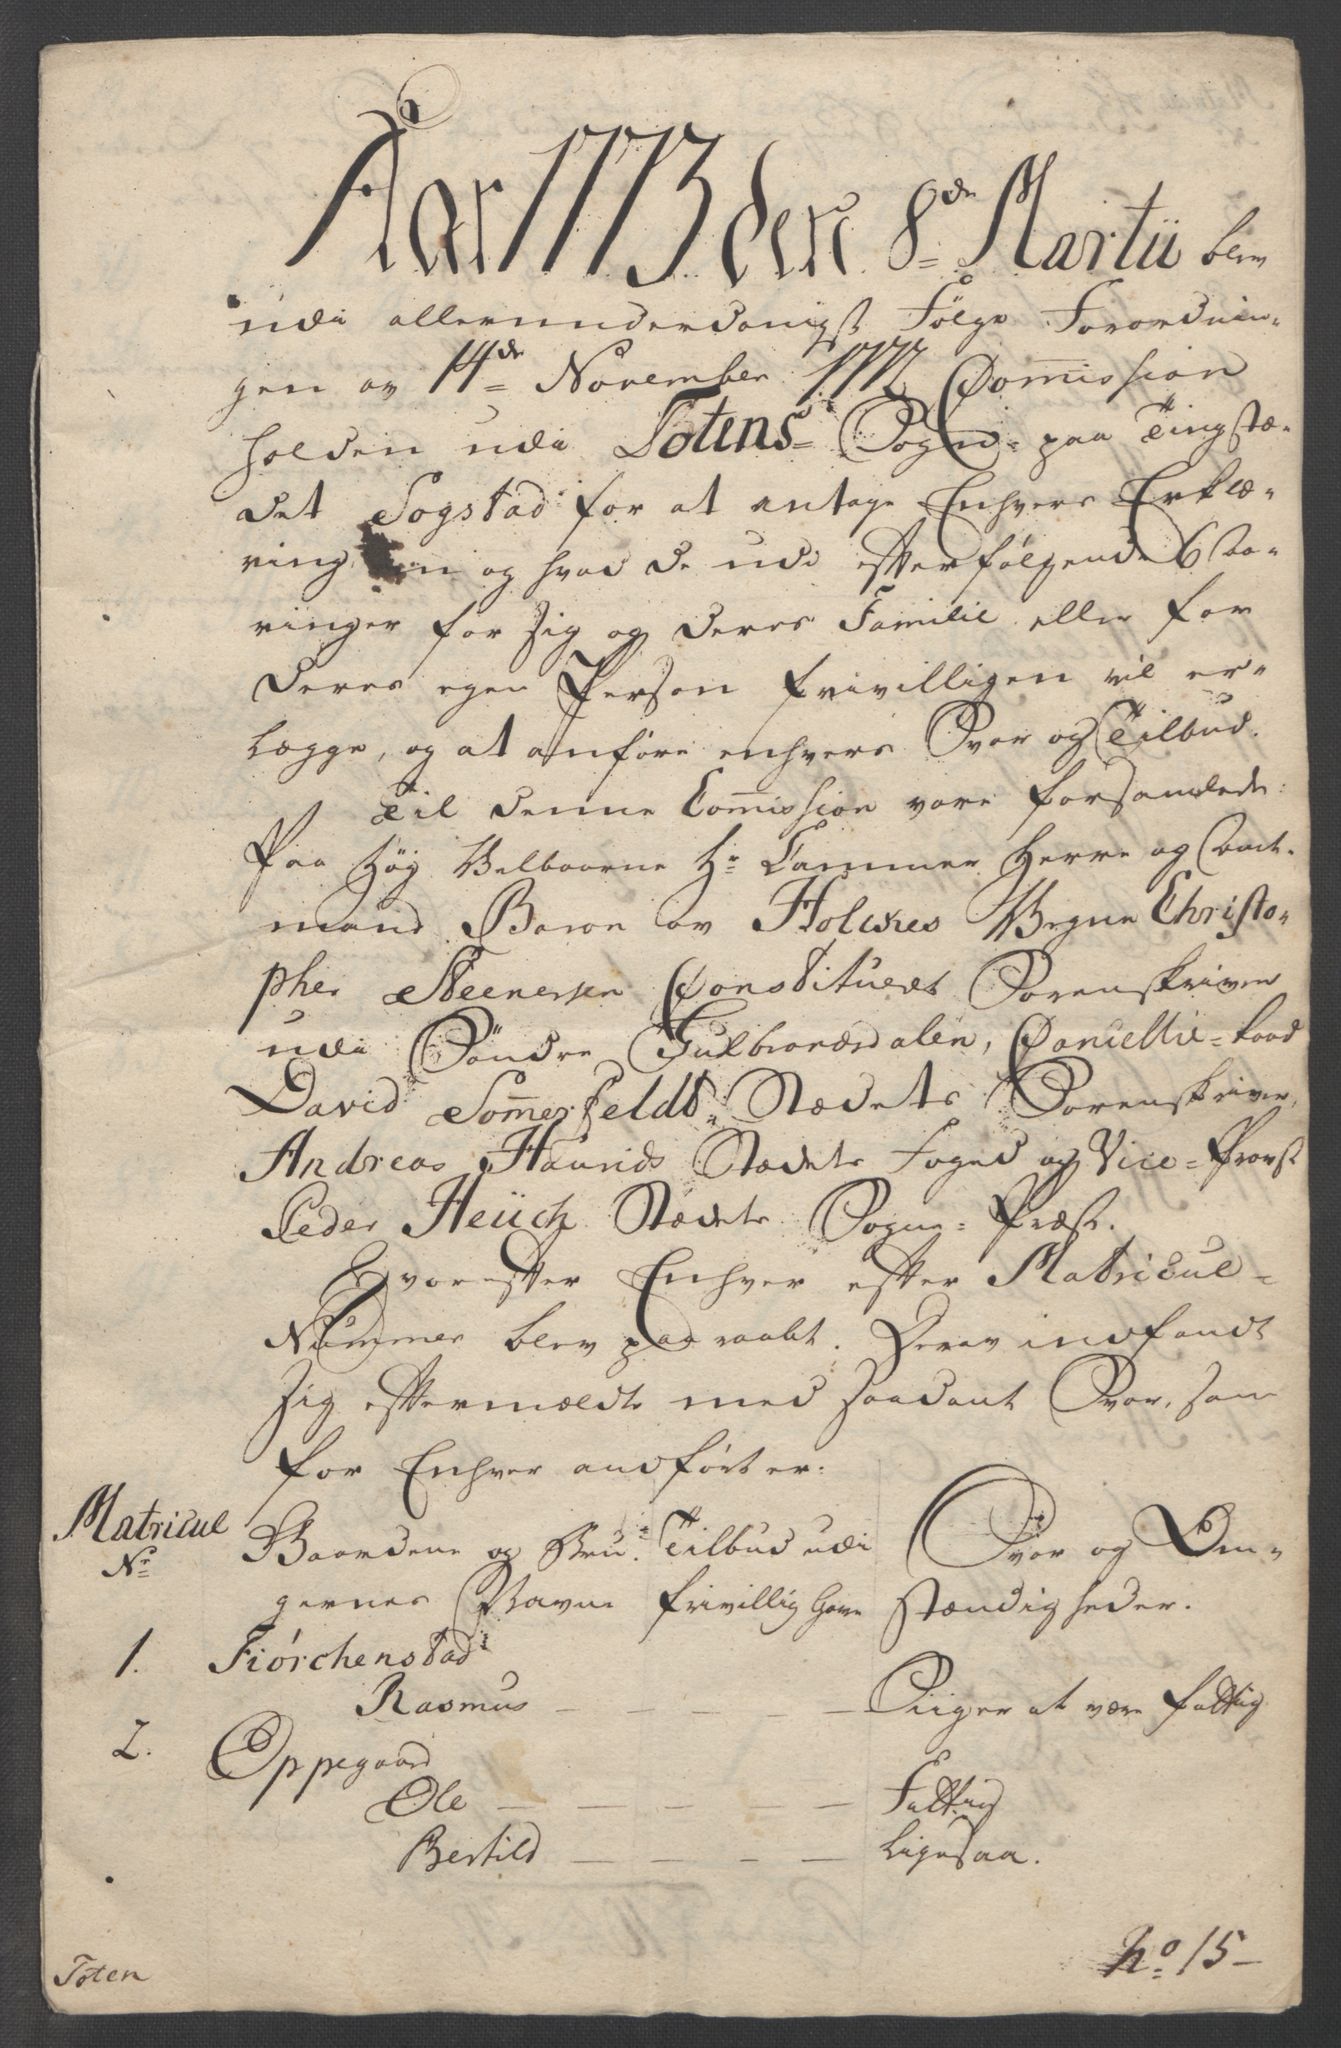 Aar 1773 den 8de Martii blev
udi allerunderdanigst Følge Forordnin-
gen av 14de November 1772 Commission
holden udi Totens Sogn paa Tingstæ-
det Sogstad for at antage Enhvers Erklæ-
ring om og hvad de udi efterfølgende 6 Aa-
ringer for sig og deres Familie eller for
deres egen Person frivilligen vil er-
lægge, og at anføre enhvers Svar og Tilbud.
Til denne Commission vare forsamlede:
Paa Høy Velbaarne Hr Cammer Herre og Amt-
mand Baron av Holckes Vegne Christo-
pher Steenersen Constitueret Sorenskriver
udi Søndre Gulbrandsdalen, Cancellie-Raad
David Sommerfeldt Stædets Sorenskriver,
Andreas Haurids Stædets Foged og Vice-Provst
Peder Heüch Stædets Sogne-Præst.
Hvorefter Enhver efter Matricul-
Nummer blev paaraabt. Derav indfandt
sig eftermældte med saadant Svar, som
for Enhver andført er:
Matricul
No
Gaardene og Bru-
gernes Navne
Tilbud udi
frivillig Gave
Svar og Om-
stændigheder.
1. Fiørchenstad
Rasmus — — — — — Siiger at være fattig
2. Oppegaard
Ole — — — — — Fattig
Bertild — — — — Ligesaa.
Toten
No 15